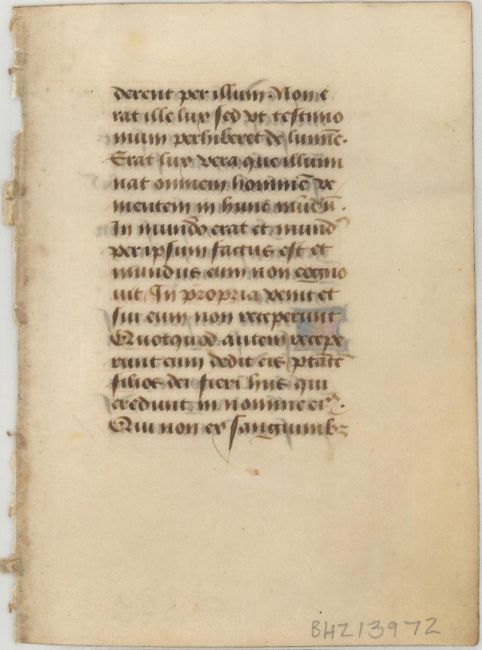 derent per illum. Non e
rat ille lux sed vt testimo
nium perhiberet de lumīe.
Erat lux vera que illumi
nat omnem hominē ve
nientem in hunc mūdū.
In mundo erat et mund9
per ipsum factus est et
mundus eum non cogno
uit. In propria venit et
sui eum non receperunt
Quotquod autem recepe
runt eum dedit eis ptātē
filios dei fieri hiis qui
credunt in nomine ei9.
Qui non ex sanguinibꝫ
BHZ13972